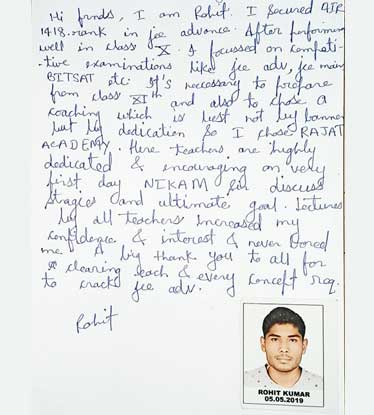 Hi frnds, I am Rohit. I secured AIR
1418. rank in jee advance. After performing
well in class X. I focussed on competi-
-tive examinations like jee adv, jee main
BITSAT etc. It's necessary to prepare
from class XIth and also to chose a
coaching which is best not by banner
but by dedication so I chose RAJAT
ACADEMY. Here teachers are highly
dedicated & encouraging on very
first day NIKAM sir discuss
strages and ultimate goal. Lectures
by all teachers increased my
confidence & interest & never bored
me. A big thank you to all for
clearing each & every concept req.
to crack jee adv.
Rohit
ROHIT KUMAR
05.05.2019